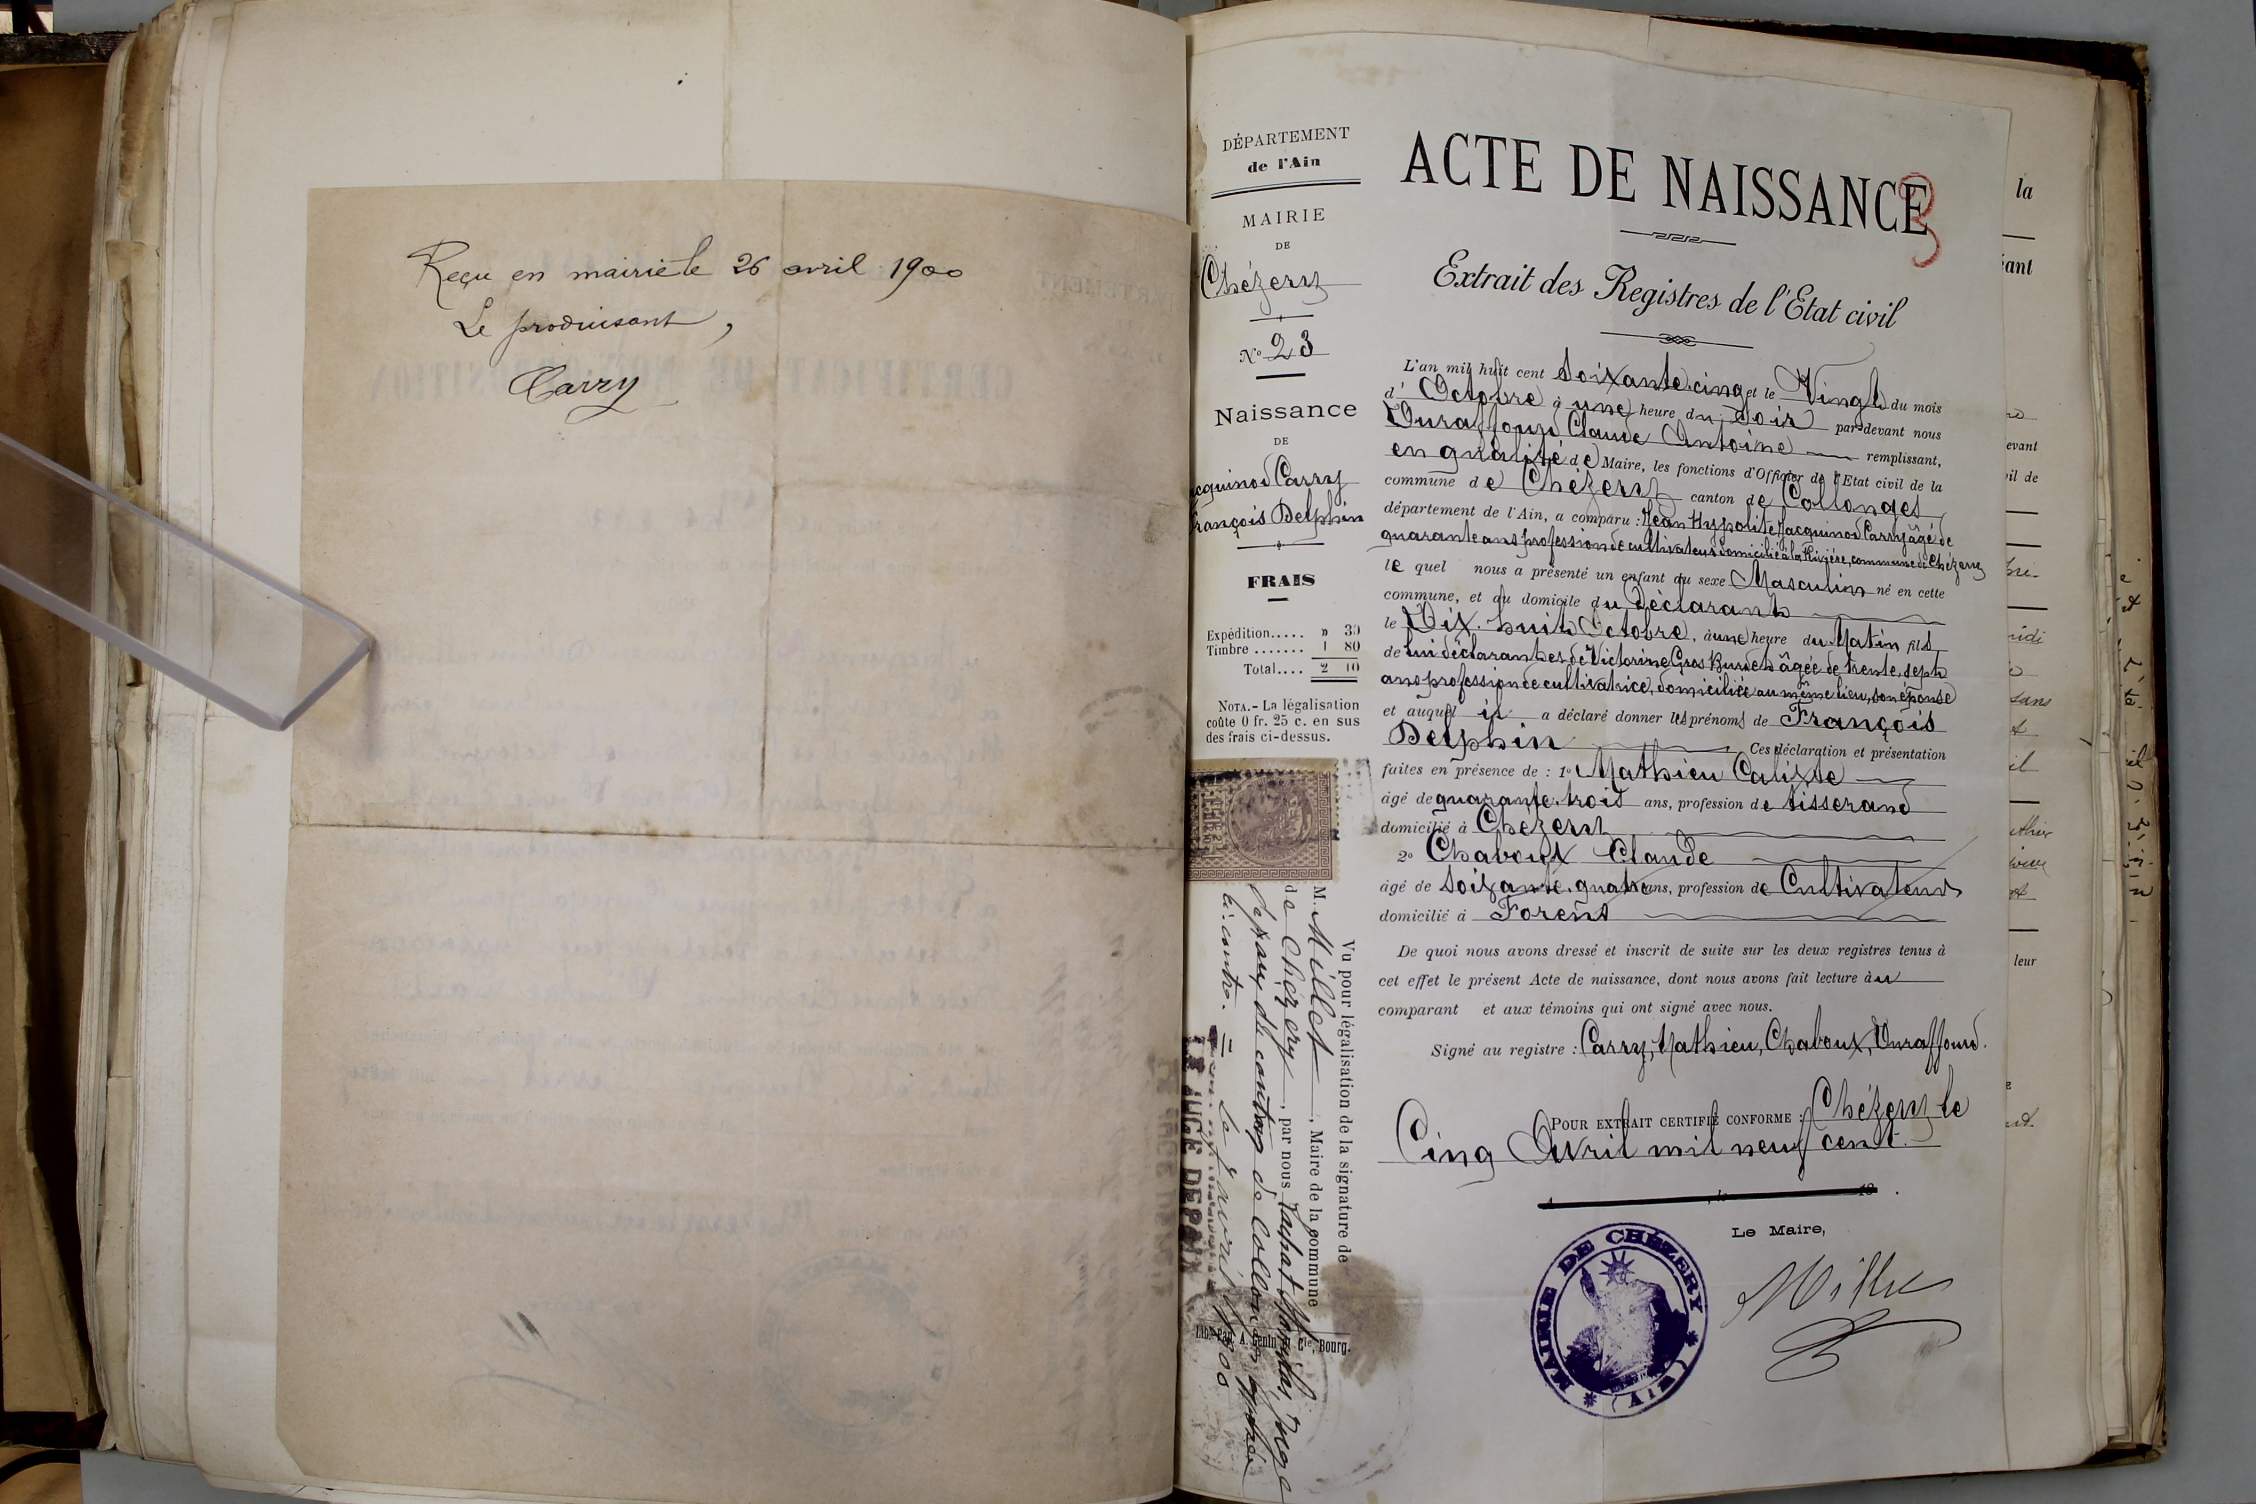 Reçu en mairie le 26 avril 1900
Le produisant,
Carry
DÉPARTEMENT
de l'Ain
MAIRIE
DE
Chézery
N° 23
Naissance
DE
Jacquinod Carry
François Delphin
FRAIS
Expédition..... » 30
Timbre....... 1 80
Total.... 2 10
NOTA.- La légalisation
coûte 0 fr. 25 c. en sus
des frais ci-dessus.
Vu pour légalisation de la signature de
M. Millet, Maire de la commune
de Chézery, par nous
de paix du canton de Collonges
ci-contre. = Le avril 1900
LE JUGE DE PAIX
Lib.-Pap. A. Genin et Cie, Bourg.
ACTE DE NAISSANCE
3
Extrait des Registres de l'Etat civil
L'an mil huit cent Soixante cinq et le Vingt du mois
d' Octobre à une heure du Soir par-devant nous
Duraffourd Claude Antoine remplissant,
en qualité de Maire, les fonctions d'Officier de l'Etat civil de la
commune de Chézery canton de Collonges
département de l'Ain, a comparu : Jean Hypolite Jacquinod Carry âgé de
quarante ans profession de cultivateur domicilié à la Rivière, commune de Chézery
le quel nous a présenté un enfant du sexe Masculin né en cette
commune, et au domicile du déclarant
le Dix-huit Octobre, à une heure du Matin fils
de lui déclarant et de Victorine Gros Burdet âgée de trente-sept
ans profession de cultivatrice, domiciliée au même lieu, son épouse
et auquel il a déclaré donner les prénoms de François
Delphin Ces déclaration et présentation
faites en présence de : 1° Mathieu Calixte
âgé de quarante-trois ans, profession de tisserand
domicilié à Chézery
2° Chaboux Claude
âgé de soixante-quatre ans, profession de Cultivateur
domicilié à Forens
De quoi nous avons dressé et inscrit de suite sur les deux registres tenus à
cet effet le présent Acte de naissance, dont nous avons fait lecture au
comparant et aux témoins qui ont signé avec nous.
Signé au registre : Carry, Mathieu, Chaboux, Duraffourd.
POUR EXTRAIT CERTIFIÉ CONFORME : Chézery le
Cinq Avril mil neuf cent.
Le Maire,
Millet
MAIRIE DE CHÉZERY
(AIN)
la